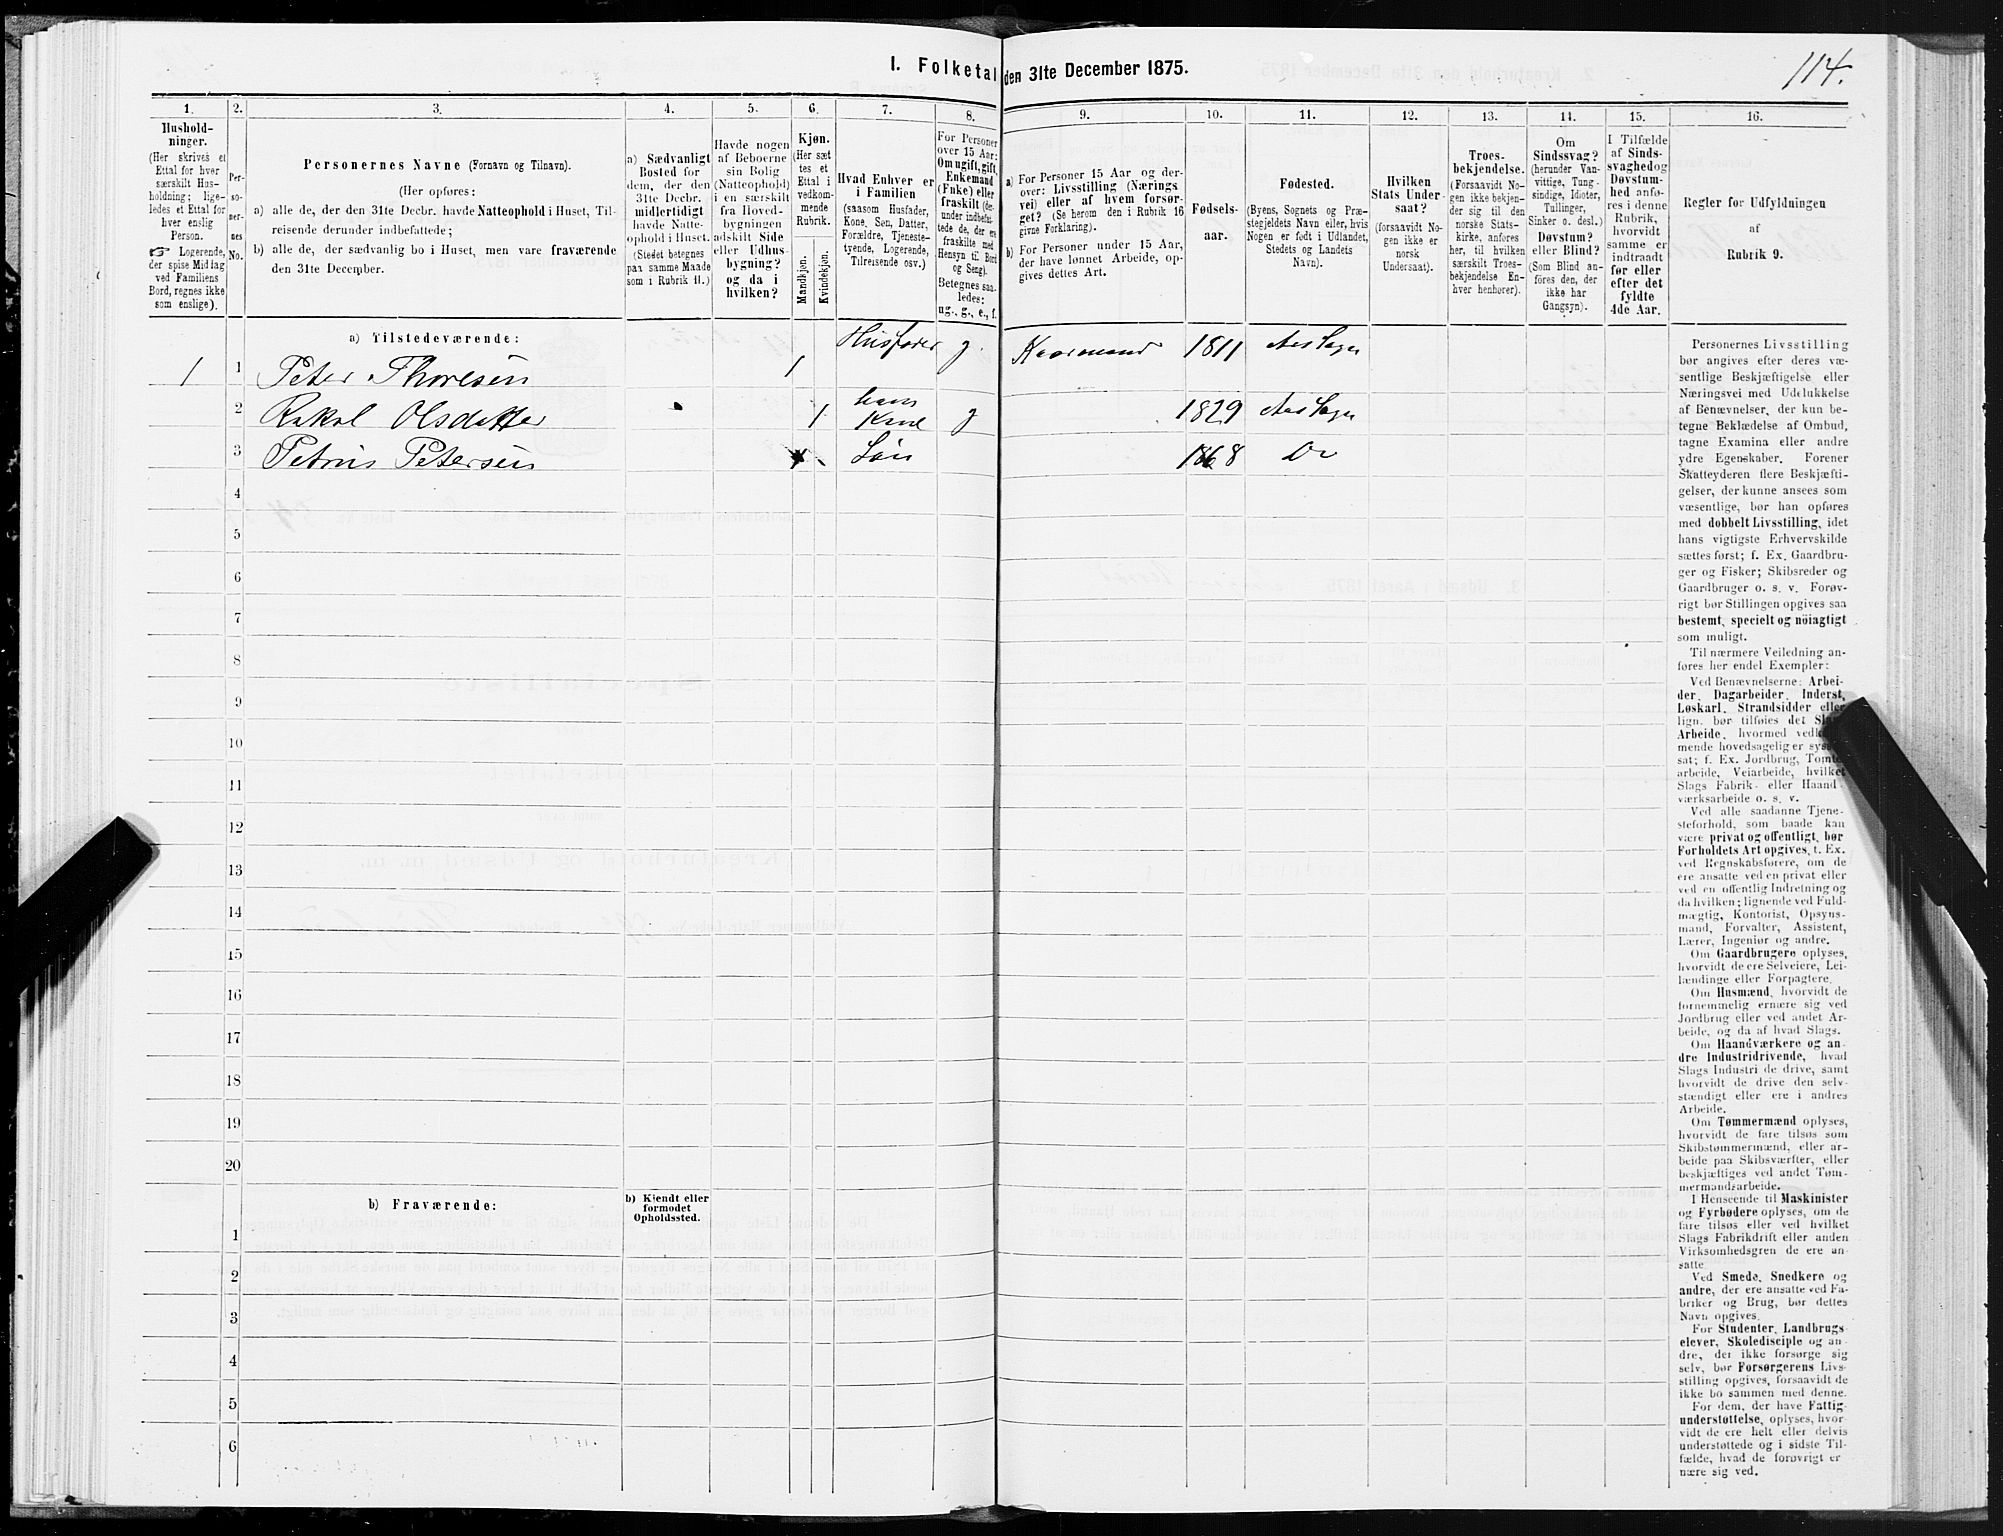 1. Folketal den 31te December 1875.
114.
1.
2.
3.
4.
5.
6.
7.
8.
9.
10.
11.
12.
13.
14.
15.
16.
Hushold-
ninger.
(Her skrives et
Ettal for hver
særskilt Hus-
holdning; lige-
ledes et Ettal for
hver enslig
Person.
☞ Logerende,
der spise Middag
ved Familiens
Bord, regnes ikke
som enslige).
Per-
so-
ner-
nes
No.
Personernes Navne (Fornavn og Tilnavn).
(Her opføres:
a) alle de, der den 31te Decbr. havde Natteophold i Huset, Til-
reisende derunder indbefattede;
b) alle de, der sædvanlig bo i Huset, men vare fraværende
den 31te December.
a) Sædvanligt
Bosted for
dem, der den
31te Decbr.
midlertidigt
havde Natte-
ophold i Huset.
(Stedet betegnes
paa samme Maade
som i Rubrik 11.)
Havde nogen
af Beboerne
sin Bolig
(Natteophold)
i en særskilt
fra Hoved-
bygningen
adskilt Side
eller Udhus-
bygning?
og da i
hvilken?
Kjøn.
(Her sæt
tes et
Ettal i
vedkom-
mende
Rubrik.
Mandkjøn.
Kvindekjøn.
Hvad Enhver er
i Familien
(saasom Husfader,
Kone, Søn, Datter,
Forældre, Tjeneste-
tyende, Logerende,
Tilreisende osv.)
For Personer
over 15 Aar:
Om ugift, gift,
Enkemand
(Enke) eller
fraskilt (der-
under indbefat-
tede de, der ere
fraskilte med
Hensyn til Bord
og Seng).
Betegnes saa-
ledes:
ug., g., e., f.
a) For Personer 15 Aar og der-
over: Livsstilling (Nærings
vei) eller af hvem forsør-
get? (Se herom den i Rubrik 16
givne Forklaring).
b) For Personer under 15 Aar,
der have lønnet Arbeide, op-
gives dettes Art.
Fødsels-
aar.
Fødested.
(Byens, Sognets og Præ-
stegjeldets Navn eller, hvis
Nogen er født i Udlandet,
Stedets og Landets
Navn).
Hvilken
Stats Under-
saat?
(forsaavidt No-
gen ikke er
norsk
Undersaat).
Troes-
bekjendelse.
(Forsaavidt No-
gen ikke bekjen-
der sig til den
norske Stats-
kirke, anføres
her, til hvilken
særskilt Troes-
bekjendelse En-
hver henhører).
Om
Sindssvag?
(herunder Van-
vittige, Tung-
sindige, Idioter,
Tullinger,
Sinker o. desl.)
Døvstum?
eller Blind?
(Som Blind an-
føres den, der
ikke har
Gangsyn).
I Tilfælde
af Sinds-
svaghed og
Døvstum-
hed anfø-
res i denne
Rubrik,
hvorvidt
samme er
indtraadt
før eller
efter det
fyldte
4de Aar.
Regler for Udfyldningen
af
Rubrik 9.
a) Tilstedeværende:
1 1 Peter Thoresen 1 Husfader g. 1811
2 Rakel Olsdatter 1 hans Kone g 1829
3 Petrus Petersen Søn 1868 Do
4
5
6
7
8
9
10
11
12
13
14
15
16
17
18
19
20
b) Fraværende:
b) Kjendt eller
formodet
Opholdssted.
1
2
3
4
5
6
Personernes Livsstilling
bør angives efter deres væ-
sentlige Beskjæftigelse eller
Næringsvei med Udelukkelse
af Benævnelser, der kun be-
tegne Beklædelse af Ombud,
tagne Examina eller andre
ydre Egenskaber. Forener
Skatteyderen flere Beskjæfti-
gelser, der kunne ansees som
væsentlige, bør han opføres
med dobbelt Livsstilling, idet
hans vigtigste Erhvervskilde
sættes først; f. Ex. Gaardbru-
ger og Fisker; Skibsreder og
Gaardbruger o. s. v. Forøv-
rigt bør Stillingen opgives saa
bestemt, specielt og nöiagtigt
som muligt.
Til nærmere Veiledning an-
føres her endel Exempler:
Ved Benævnelserne: Arbei-
der, Dagarbeider, Inderst,
Løskarl, Strandsidder eller
lign. bør tilføies det Slags
Arbeide, hvormed vedkom-
mende hovedsagelig er syssel-
sat; f. Ex. Jordbrug, Tomte-
arbeide, Veiarbeide, hvilket
Slags Fabrik- eller Haand-
værksarbeide o. s. v.
Ved alle saadanne Tjene-
steforhold, som baade kan
være privat og offentligt, bør
Forholdets Art opgives, f. Ex.
ved Regnskabsførere, om de
ere ansatte ved en privat eller
ved en offentlig Indretning og
da hvilken; lignende ved Fuld-
mægtig, Kontorist, Opsyns-
mand, Forvalter, Assistent,
Lærer, Ingeniør og andre.
Om Gaardbrugere oplyses,
hvorvidt de ere Selveiere, Lei-
lændinge eller Forpagtere.
Om Husmænd, hvorvidt de
fornemmelig ernære sig ved
Jordbrug eller ved andet Ar-
beide, og da af hvad Slags.
Om Haandværkere og an-
dre Industridrivende, hvad
Slags Industri de drive, samt
hvorvidt de drive den selv-
stændigt eller ere i andres
Arbeide.
Om Tømmermænd oplyses,
hvorvidt de fare tilsøs som
Skibstømmermænd, eller ar-
beide paa Skibsværfter, eller
beskjæftiges ved andet Tøm-
mermandsarbeide.
I Henseende til Maskinister
og Fyrbødere oplyses, om de
fare tilsøs eller ved hvilket
Slags Fabrikdrift eller anden
Virksomhedsgren de ere an-
satte.
Ved Smede, Snedkere og
andre, der ere ansatte ved Fa-
briker og Brug, bør dettes
Navn opgives.
For Studenter, Landbrugs
elever, Skoledisciple og an-
dre, der ikke forsørge sig
selv, bør Forsørgerens Livs-
stilling opgives, forsaavidt de
ikke bo sammen med denne.
For dem, der have Fattig-
understøttelse, oplyses, hvor-
vidt de ere helt eller delvis
understøttede og i sidste Til-
fælde, hvad de forøvrigt er
nære sig ved.